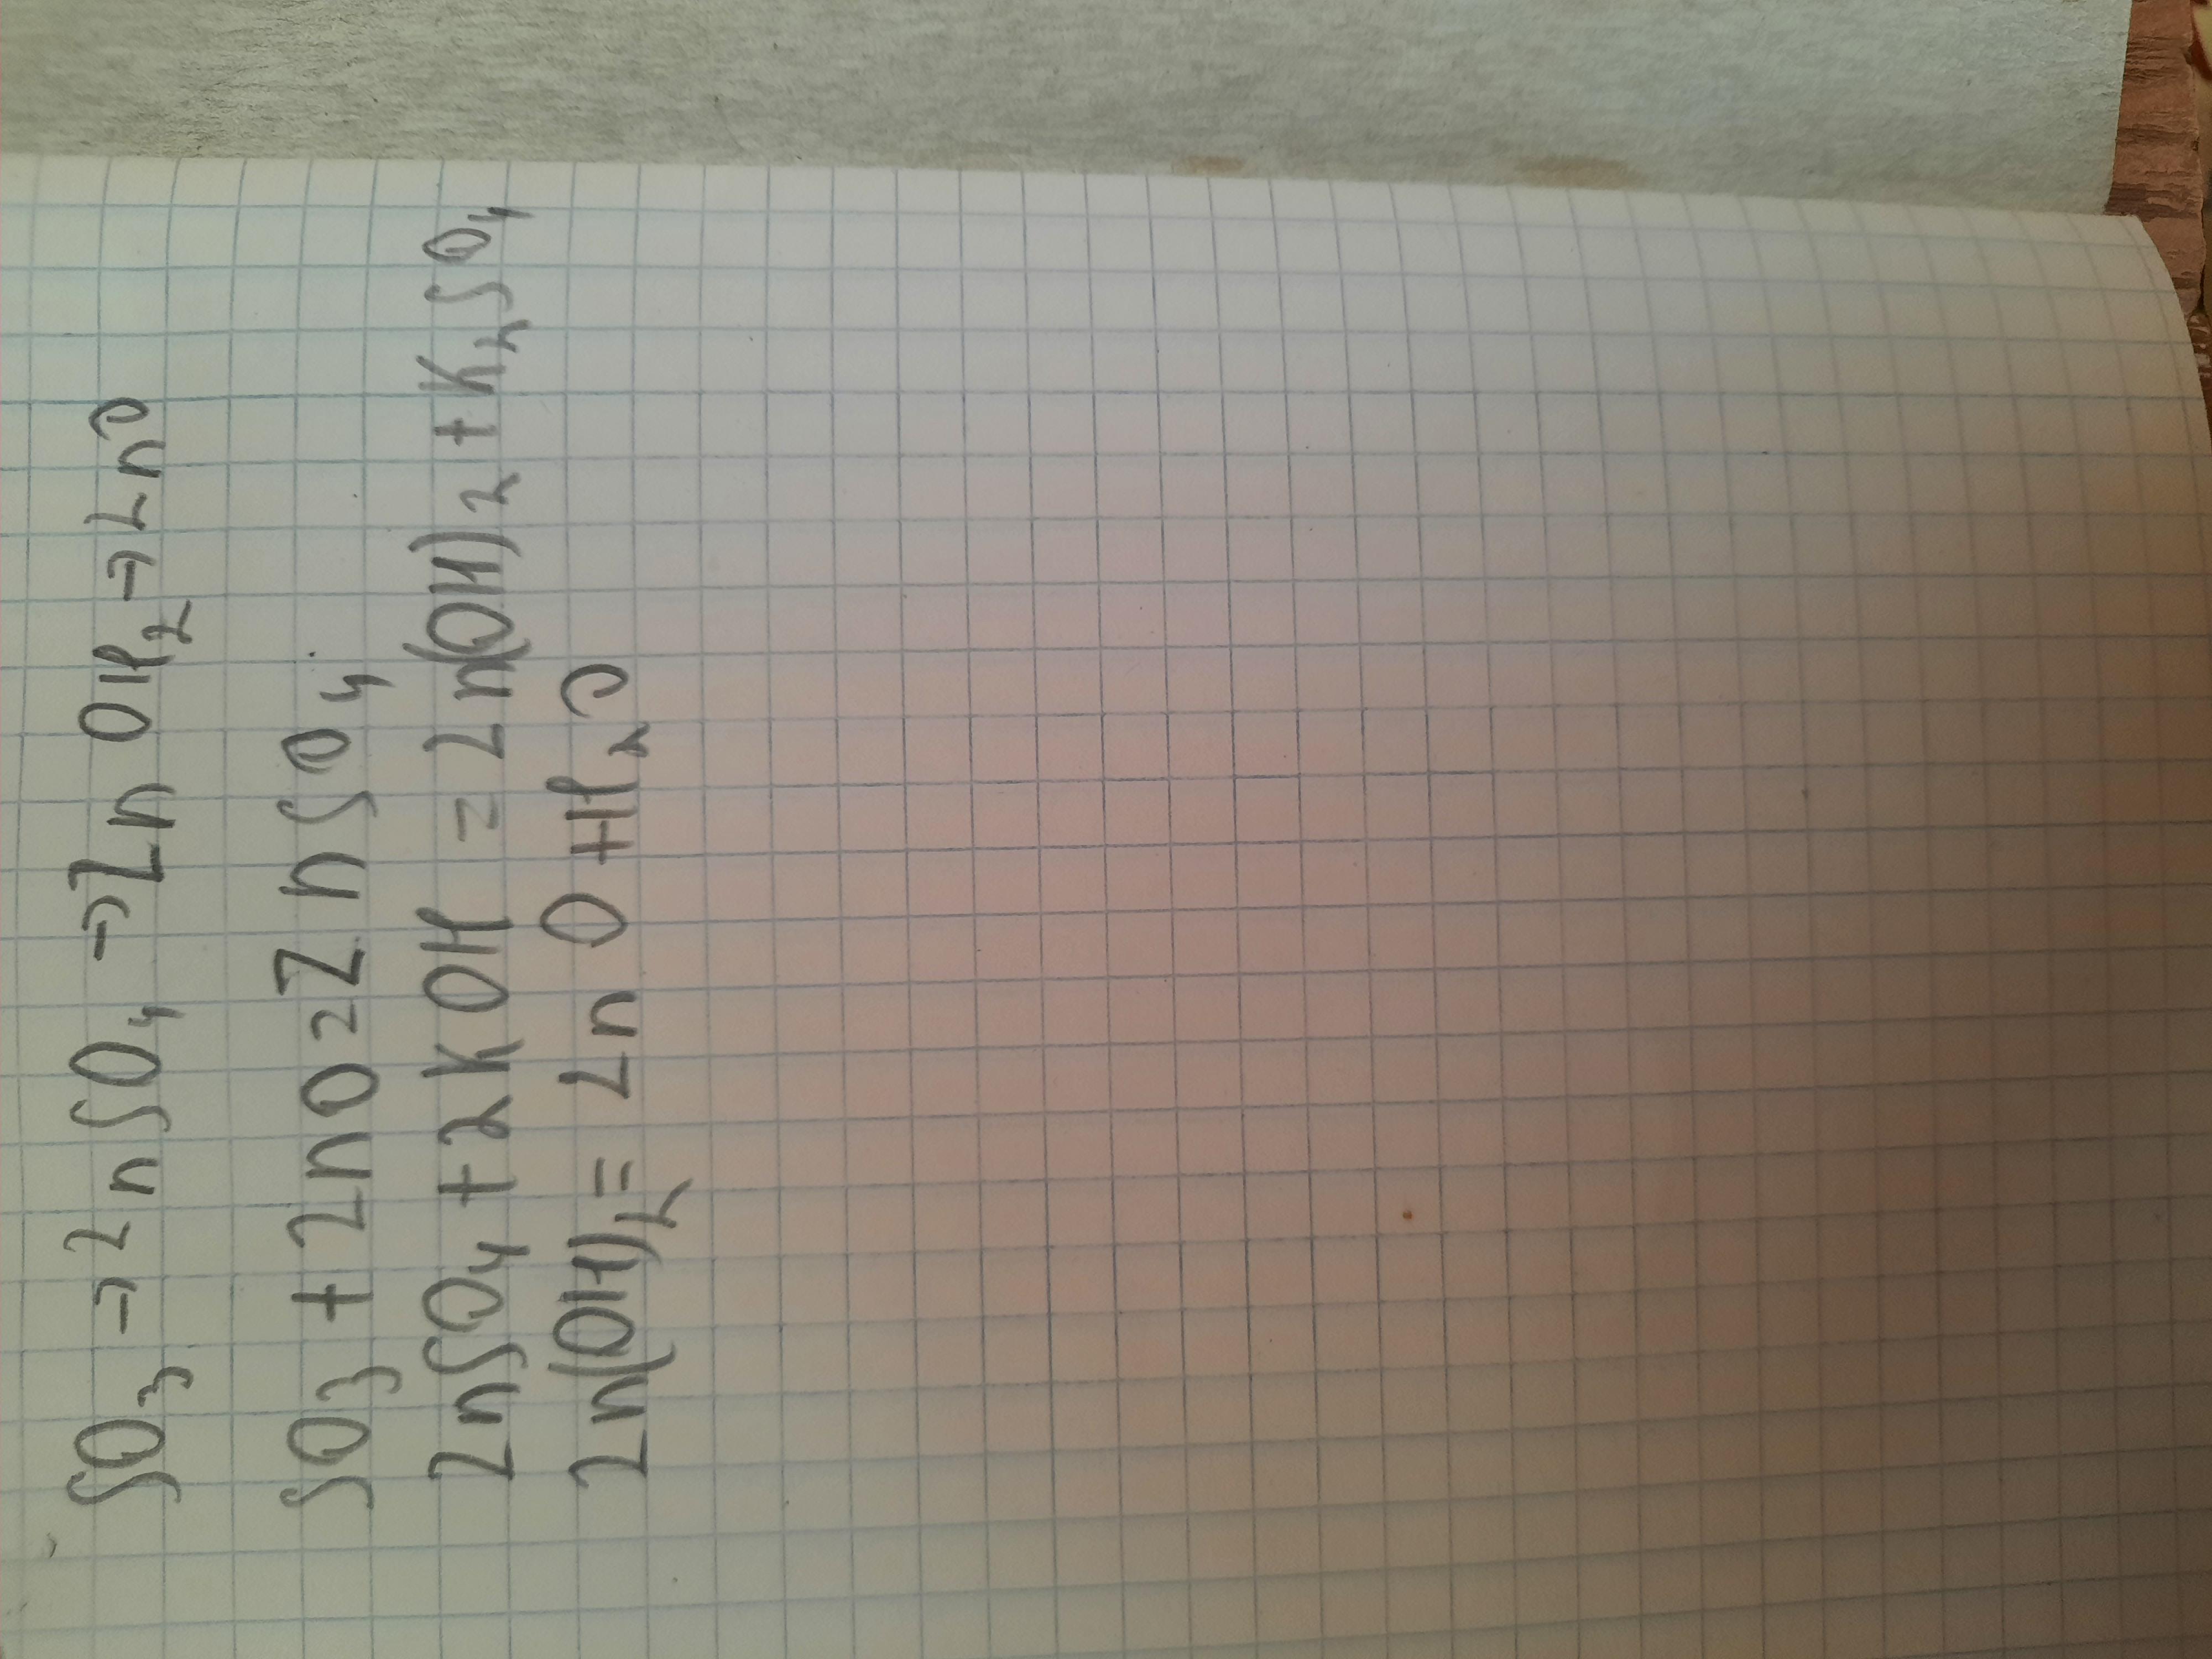 SO₃ → ZnSO₄ → Zn OH₂ → ZnO
SO₃ + ZnO = ZnSO₄
ZnSO₄ + 2KOH = Zn(OH)₂ + K₂SO₄
Zn(OH)₂ = ZnO + H₂O